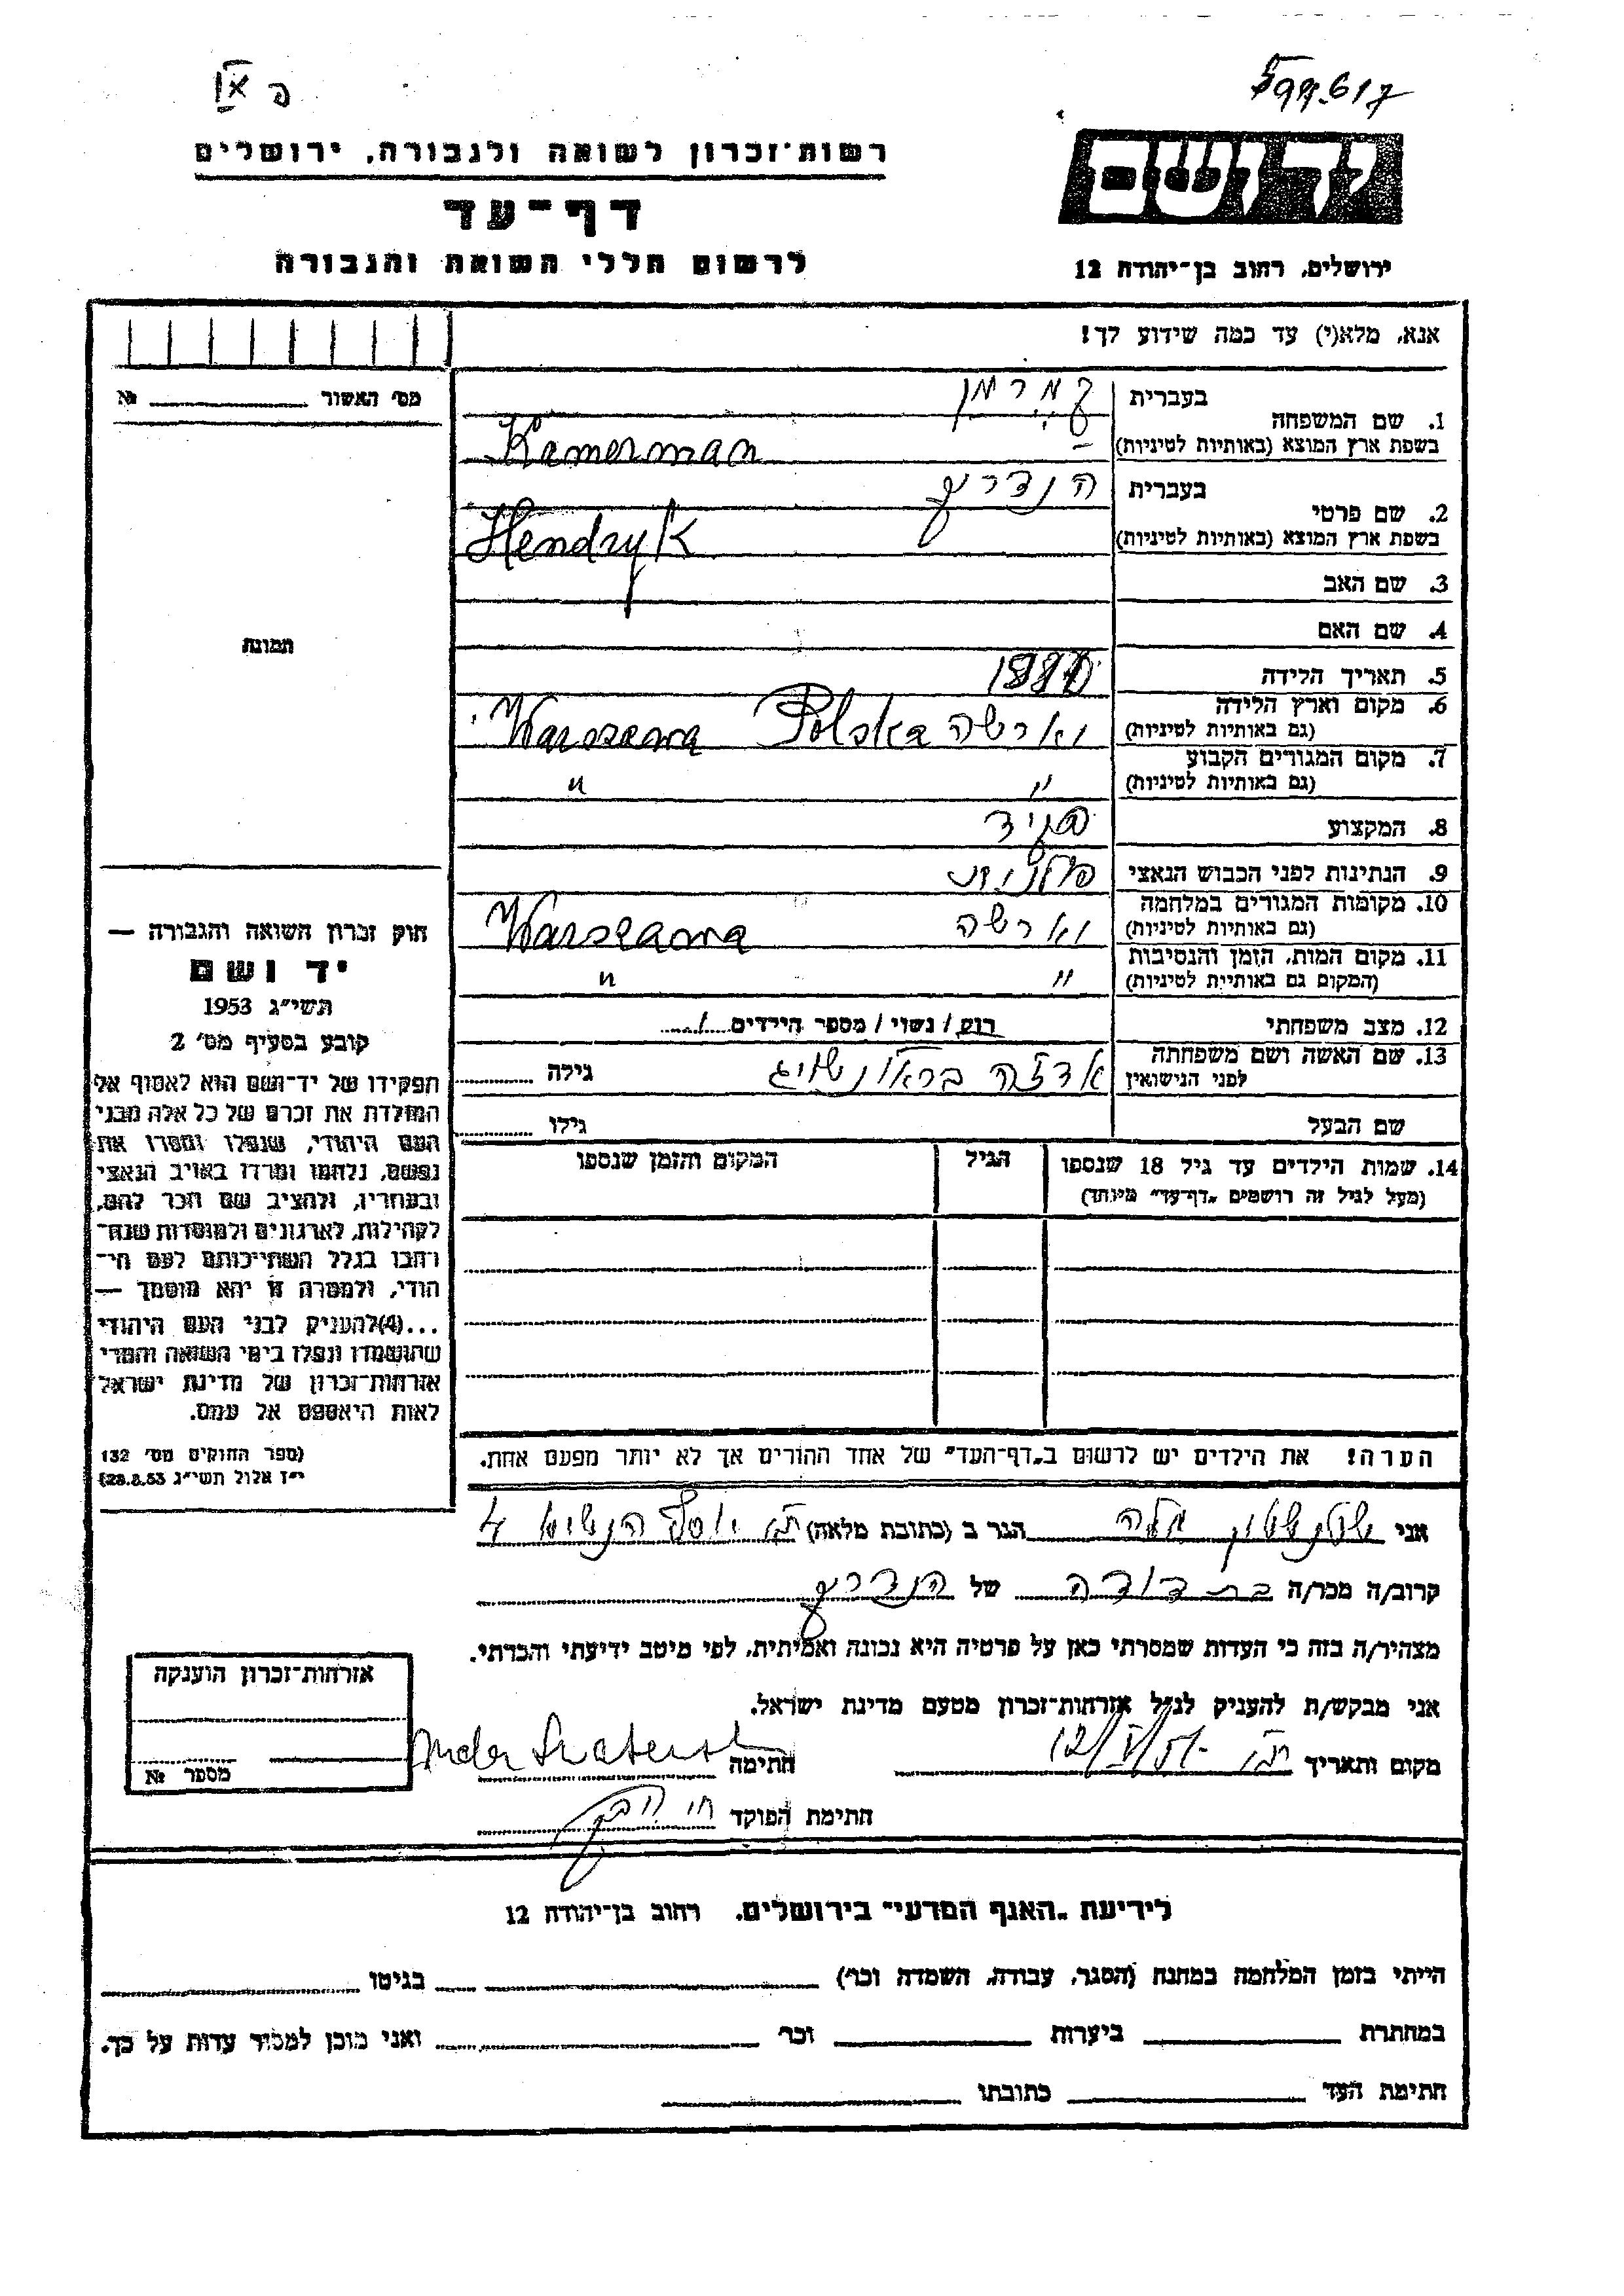 599.617
רשות־זכרון לשואה ולגבורה, ירושלים
דף־עד
לרשום חללי השואה והגבורה
יד ושם
ירושלים, רחוב בן־יהודה 12
אנא, מלא(י) עד כמה שידוע לך!
מס' האשור № 
1. שם המשפחה בעברית קמרמן
בשפת ארץ המוצא (באותיות לטיניות) Kamerman
2. שם פרטי בעברית הנדריק
בשפת ארץ המוצא (באותיות לטיניות) Hendryk
3. שם האב
4. שם האם
5. תאריך הלידה
6. מקום וארץ הלידה (גם באותיות לטיניות) ווארשה Warszawa Polska
7. מקום המגורים הקבוע (גם באותיות לטיניות) " "
8. המקצוע פקיד
9. הנתינות לפני הכבוש הנאצי פולנית
10. מקומות המגורים במלחמה (גם באותיות לטיניות) ווארשה Warszawa
11. מקום המות, הזמן והנסיבות (המקום גם באותיית לטיניות) " "
12. מצב משפחתי רוק / נשוי / מספר הילדים 1
13. שם האשה ושם משפחתה לפני הנישואין גילה
שם הבעל גילו
14. שמות הילדים עד גיל 18 שנספו הגיל המקום והזמן שנספו
(מעל לגיל זה רושמים "דף־עד" מיוחד)
הערה! את הילדים יש לרשום ב"דף־העד" של אחד ההורים אך לא יותר מפעם אחת.
תמונה
חוק זכרון השואה והגבורה —
יד ושם
תשי"ג 1953
קובע בסעיף מס' 2
תפקידו של יד־ושם הוא לאסוף אל
המולדת את זכרם של כל אלה מבני
העם היהודי, שנפלו ומסרו את
נפשם, נלחמו ומרדו באויב הנאצי
ובעוזריו, ולהציב שם וזכר להם,
לקהילות, לארגונים ולמוסדות שנח־
רבו בגלל השתייכותם לעם הי־
הודי, ולמטרה זו יהא מוסמך —
...(4)להעניק לבני העם היהודי
שהושמדו ונפלו בימי השואה והמרי
אזרחות־זכרון של מדינת ישראל
לאות היאספם אל עמם.
(ספר החוקים מס' 132
י"ז אלול תשי"ג 28.8.53)
אני הגר ב (כתובת מלאה) ת"א יוסף הנשיא 4
קרוב/ה מכר/ה בת דודה של הנדריק
מצהיר/ה בזה כי העדות שמסרתי כאן על פרטיה היא נכונה ואמיתית, לפי מיטב ידיעתי והכרתי.
אני מבקש/ת להעניק לנ"ל אזרחות־זכרון מטעם מדינת ישראל.
מקום ותאריך ת"א חתימה
חתימת הפוקד
אזרחות־זכרון הוענקה
מספר №
לידיעת "האגף המדעי" בירושלים, רחוב בן־יהודה 12
הייתי בזמן המלחמה במחנה (הסגר, עבודה, השמדה וכו') בגיטו
במחתרת ביערות וכו' ואני מוכן למסור עדות על כך.
חתימת העד כתובתו